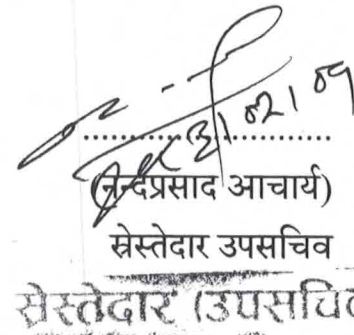 (नन्दप्रसाद आचार्य)
स्रेस्तेदार उपसचिव
स्रेस्तेदार (उपसचिव